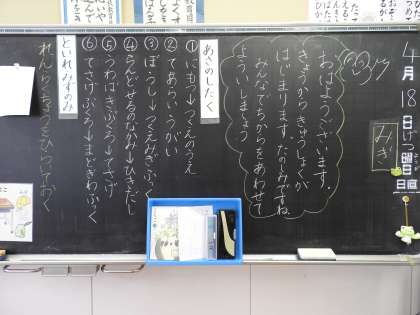 4月18日げつ曜日
日直
みぎ
おはようございます。
きょうからきゅうしょくが
はじまります。たのしみですね。
みんなでちからをあわせて
よういしましょう。
あさのしたく
①にもつ→つくえのうえ
②てあらい、うがい
③ぼうし→つくえみぎふっく
④らんどせるのなかみ→ひきだし
⑤うわぎ、きぶくろ→てさげ
⑥てさげぶくろ→まどぎわふっく
といれ、みずのみ
れんらくちょうをひらいておく